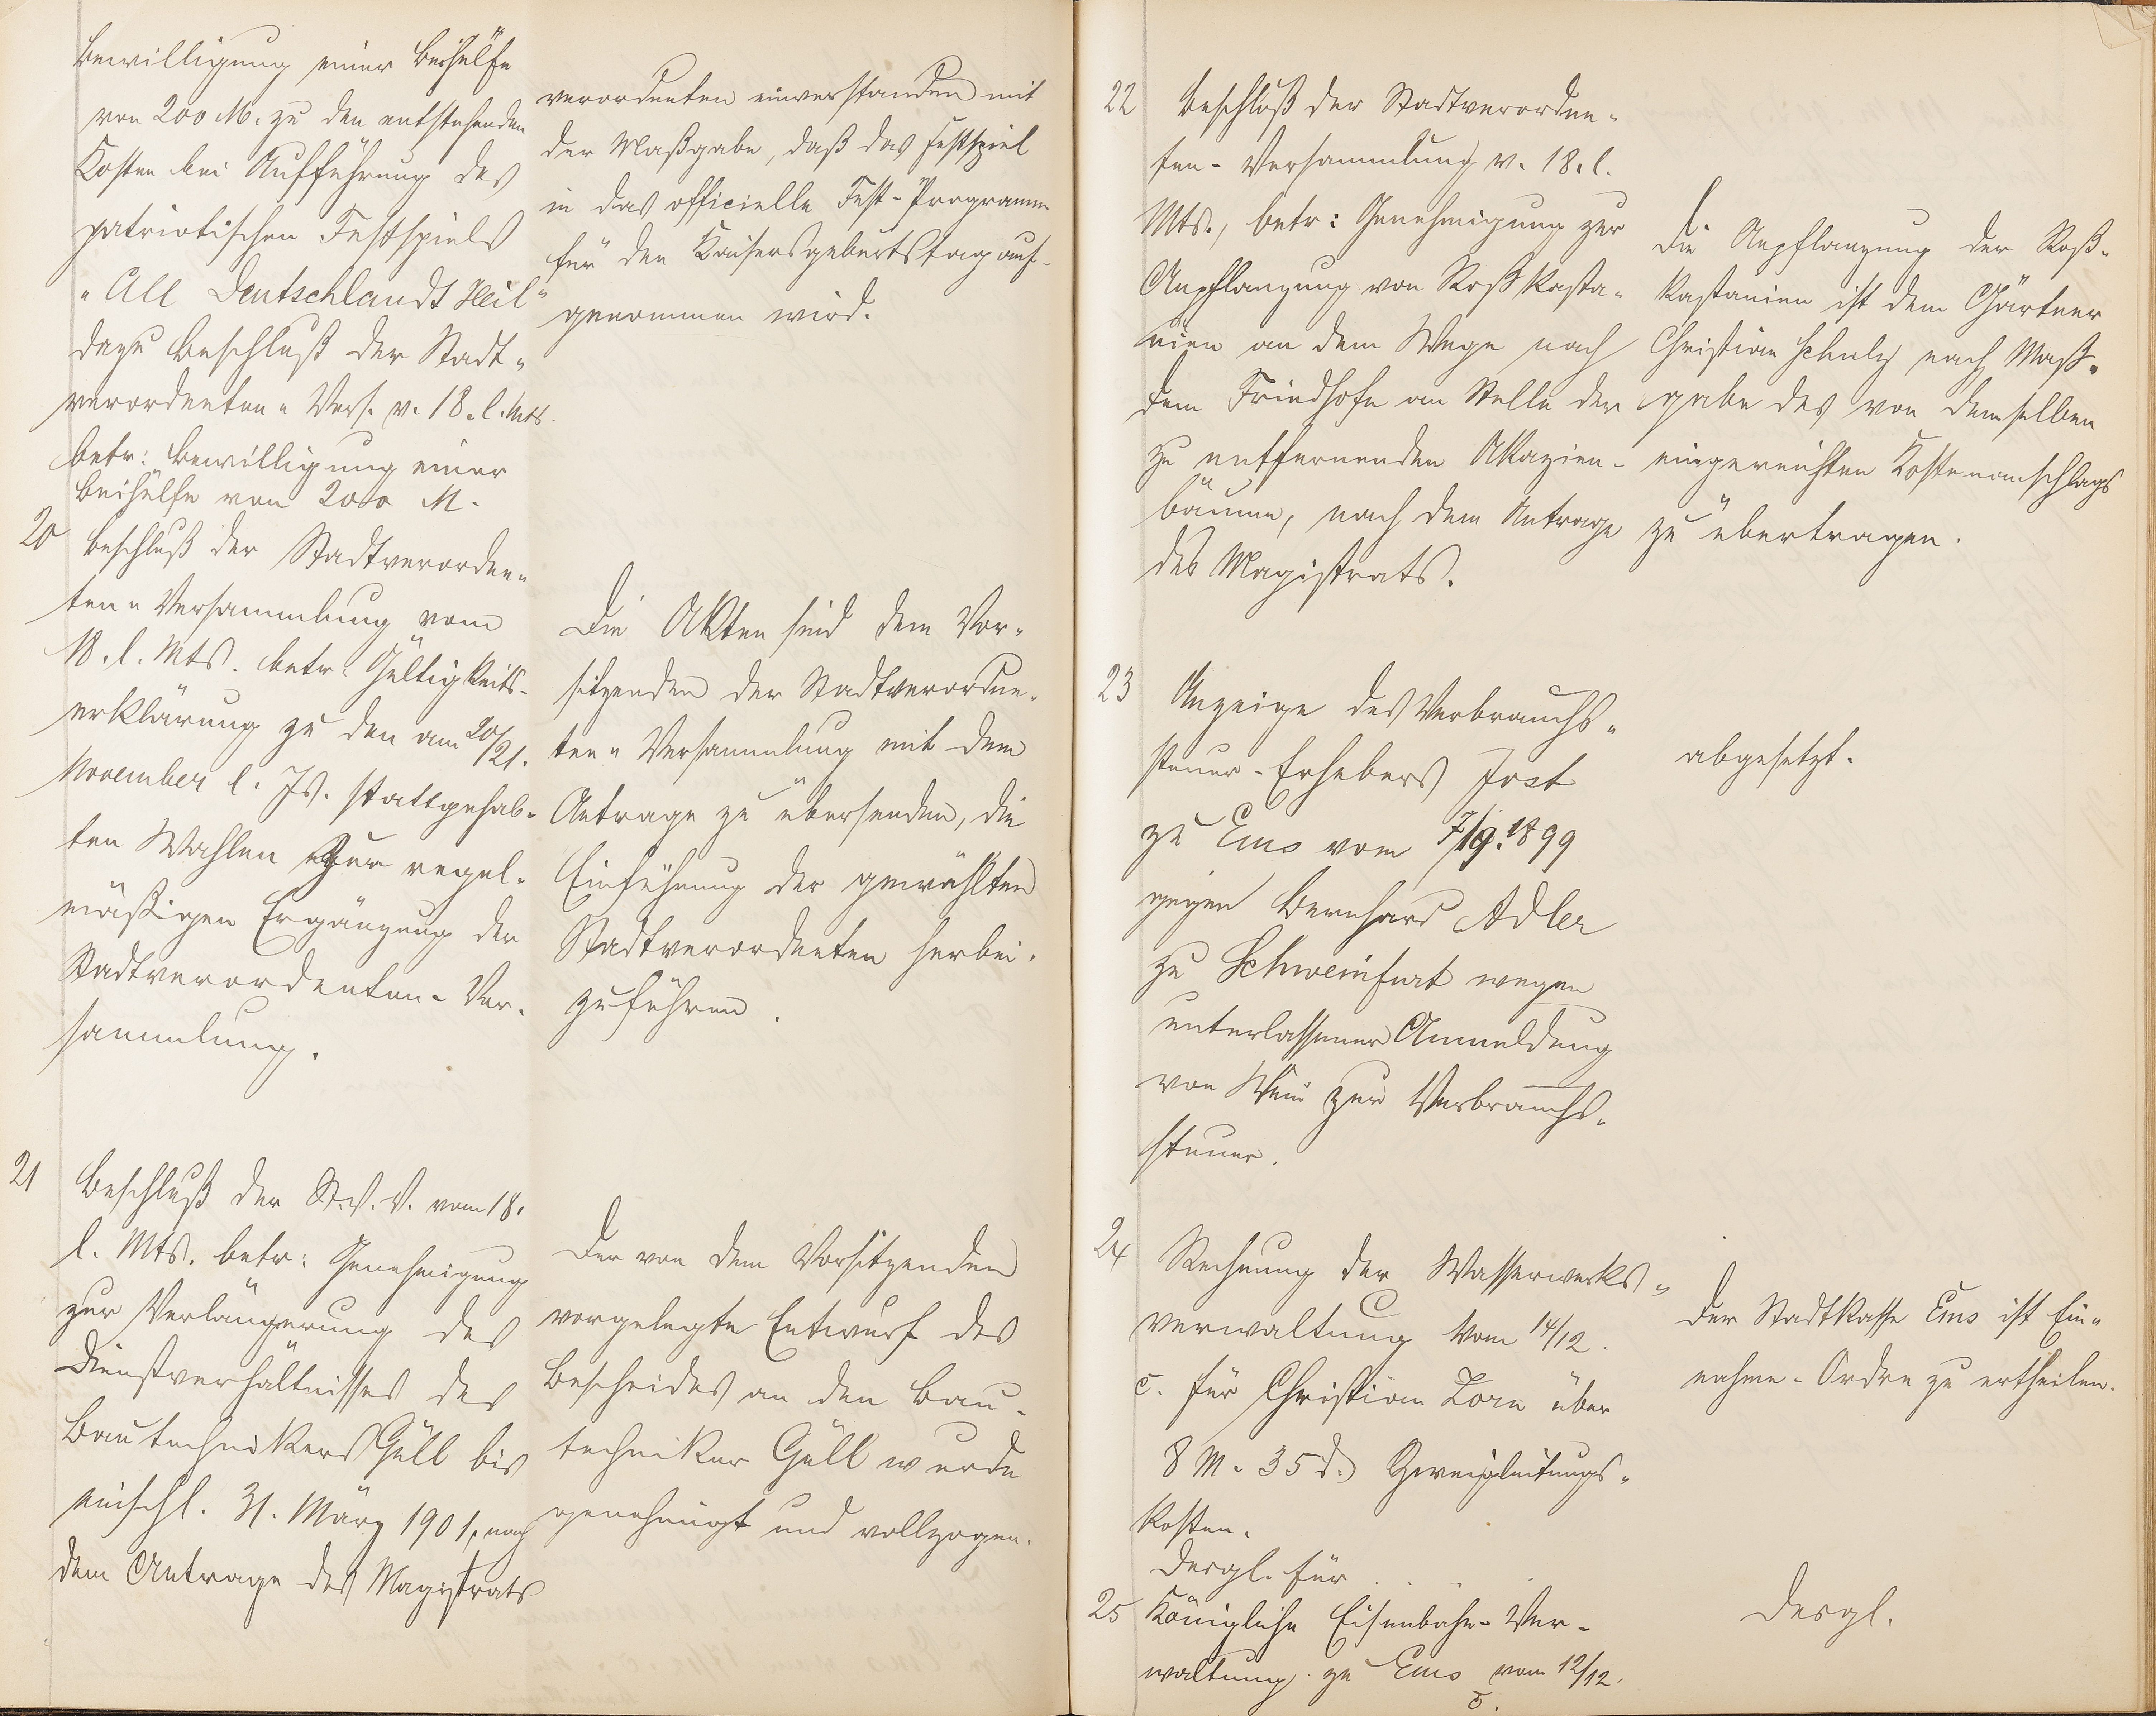 Bewilligung einer Beihülfe
von 200 M. zu den entstehenden
Kosten bei Aufführung des
patriotischen Festspiels
"All Deutschlandt Heil"
dazu Beschluß der Stadt-
verordneten-Vers. v. 18. l. Mts.
betr: Bewilligung einer
Beihülfe von 200 M.
verordneten einverstanden mit
der Maßgabe, daß das Festspiel
in das officielle Fest-Programm
für den Kaisersgeburtstag auf-
genommen wird.
20 Beschluß der Stadtverordne-
ten-Versammlung vom
18. l. Mts. betr: Gültigkeits-
erklärung zu den am 20/21.
November l. Js. stattgehab-
ten Wahlen zur regel-
mäßigen Ergänzung der
Stadtverordneten-Ver-
sammlung.
Die Akten sind dem Vor-
sitzenden der Stadtverordne-
ten-Versammlung mit dem
Antrage zu übersenden, die
Einführung der gewählten
Stadtverordneten herbei-
zuführen.
21 Beschluß der St. V. V. vom 18.
l. Mts. betr: Genehmigung
zur Verlängerung des
Dienstverhältnisses des
Bautechnikers Güll bis
einschl. 31. März 1901, nach
dem Antrage des Magistrats
Der von dem Vorsitzenden
vorgelegte Entwurf des
Bescheides an den Bau-
techniker Güll wurde
genehmigt und vollzogen.
22 Beschluß der Stadtverordne-
ten-Versammlung v. 18. l.
Mts., betr: Genehmigung zur
Anpflanzung von Roßkasta-
nien an dem Wege nach
dem Friedhofe an Stelle der
zu entfernenden Akazien-
bäume, nach dem Antrage
des Magistrats.
Die Anpflanzung der Roß-
kastanien ist dem Gärtner
Christian Schulz nach Maß-
gabe des von demselben
eingereichten Kostenanschlags
zu übertragen.
23 Anzeige des Verbrauchs-
steuer-Erhebers Jost
zu Ems vom 7/9. 1899
gegen Bernhard Adler
zu Schweinfurt wegen
unterlassener Anmeldung
von Wein zur Verbrauchs-
steuer.
abgesetzt.
24 Rechnung der Wasserwerks-
verwaltung vom 14/12.
c. für Christian Zorn über
8 M. 35 d. Zweigleitungs-
kosten.
Der Stadtkasse Ems ist Ein-
nahme-Ordre zu ertheilen.
Desgl. für
25 Königliche Eisenbahn-Ver-
waltung zu Ems vom 12/12.
c.
Desgl.